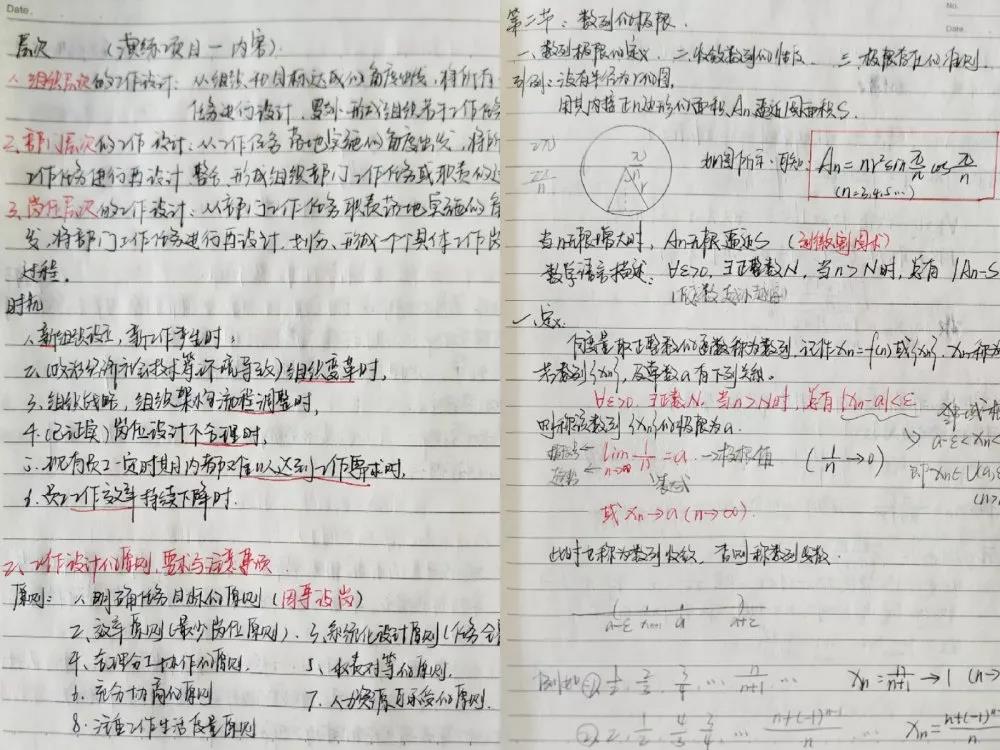 Date.
层次 (演练项目一内容).
1、组织层次的工作设计：从组织和目标达成的角度出发，将所有
任务进行设计，
2、部门层次的工作设计：从工作任务落地实施的角度出发，将所
工作任务进行再设计、整合、形成组织部门工作任务或职责的过
3、岗位层次的工作设计：从部门工作任务职责落地实施的角
发，将部门工作任务进行再设计、划分、形成一个个具体工作岗
过程。
时机
1、新组织设立，新工作产生时；
2、(政治经济社会技术等环境导致)组织变革时，
3、组织战略，组织架构流程调整时，
4、(已证实)岗位设计不合理时，
5、现有员工一定时期内都难以达到工作要求时，
6、员工作效率持续下降时.
二、工作设计的原则，要求与注意事项
原则： 1、明确任务目标的原则 (因事设岗)
2、效率原则(最少岗位原则). 3、系统化设计原则(任务
4、合理分工协作的原则. 5、权责对等的原则.
6、充分协商的原则 7、人力资源可承受的原则.
8、注重工作生活质量原则
No.
Date
第二节：数列的极限.
一、数列极限的定义 二、收敛数列的性质 三、极限存在的准则
引例：设有半径为r的圆，
用其内接正n边形的面积An逼近圆面积S.
2π
2π/n
π/n
r
如图所示，可知 An = nr² sin π/n cos π/n
(n=3,4,5…)
当n无限增大时，An无限逼近S (刘徽割圆术)
数学语言描述：∀ε>0, ∃正整数N, 当n>N时，总有 |An-S
一、定义
自变量取正整数的函数称为数列，记作xn=f(n)或{xn}, xn称为
若数列{xn}, 及常数a有下列关系。
∀ε>0, ∃正数N, 当n>N时，总有|xn-a|<ε
则称该数列{xn}的极限为a.
a-ε<xn<
lim n→∞ 1/n = a → 极限值 (1/n→0)
即xn∈U(a,ε
(n>
或 xn→a (n→∞).
此时也称为数列收敛，否则称数列发散.
a-ε xn+1 a a+ε
例如① 1/2, 2/3, 3/4, … n/n+1 … xn = n/n+1 → 1 (n→
② 2, 1/2, 4/3, 3/4, … n+(-1)^n-1/n xn = n+(-1)^n-1/n